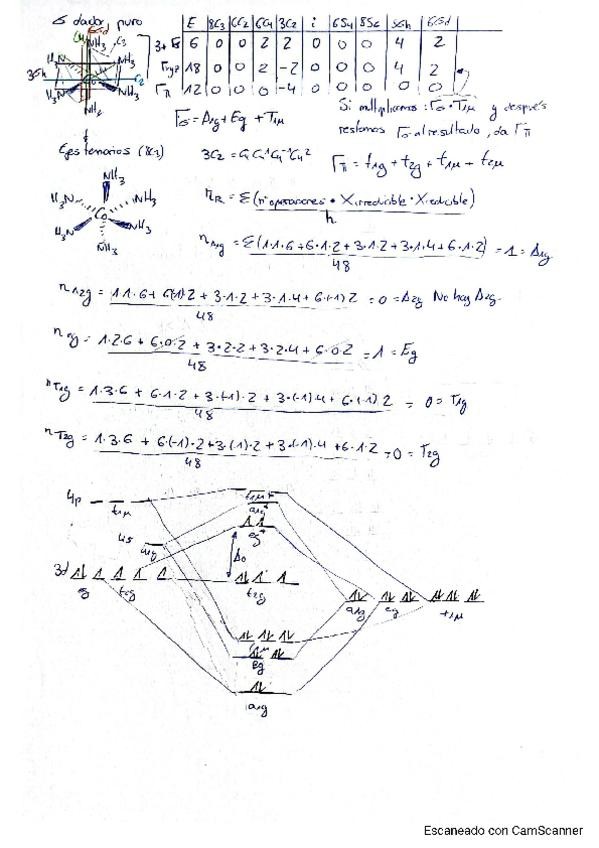 σ dador puro
E 8C3 6C2 6C4 3C2 i 6S4 8S6 3σh 6σd
Γσ 6 0 0 2 2 0 0 0 4 2
Γxyz 18 0 0 2 -2 0 0 0 4 2
Γπ 12 0 0 0 -4 0 0 0 0 0
NH3
H3N NH3
3σh C2
H3N NH3
NH3
Γσ = A1g + Eg + T1μ
Si multiplicamos: Γσ · T1μ y después
restamos Γσ al resultado, da Γπ
Ejes ternarios (8C3)
3C2 = C4 C4^1 C4^-1 C4^2
Γπ = t1g + t2g + t1μ + t2μ
NH3
H3N NH3
Co
H3N NH3
NH3
nR = Σ(nº operaciones · X irreducible · X reducible) / h
nA1g = Σ(1·1·6 + 6·1·2 + 3·1·2 + 3·1·4 + 6·1·2) / 48 = 1 = A1g
nA2g = 1·1·6 + 6(-1)·2 + 3·1·2 + 3·1·4 + 6·(-1)2 / 48 = 0 = A2g No hay A2g.
neg = 1·2·6 + 6·0·2 + 3·2·2 + 3·2·4 + 6·0·2 / 48 = 1 = Eg
nT1g = 1·3·6 + 6·1·2 + 3·(-1)·2 + 3·(-1)4 + 6·(-1)2 / 48 = 0 = T1g
nT2g = 1·3·6 + 6·(-1)·2 + 3·(-1)·2 + 3·(-1)·4 + 6·1·2 / 48 = 0 = T2g
4p t1μ
t1μ*
a1g*
4s a1g
eg*
Δo
3d eg t2g
t2g
a1g eg t1μ
t1μ
eg
a1g
Escaneado con CamScanner